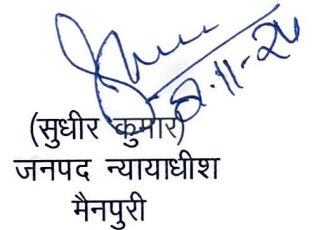 2.11.24
(सुधीर कुमार)
जनपद न्यायाधीश
मैनपुरी